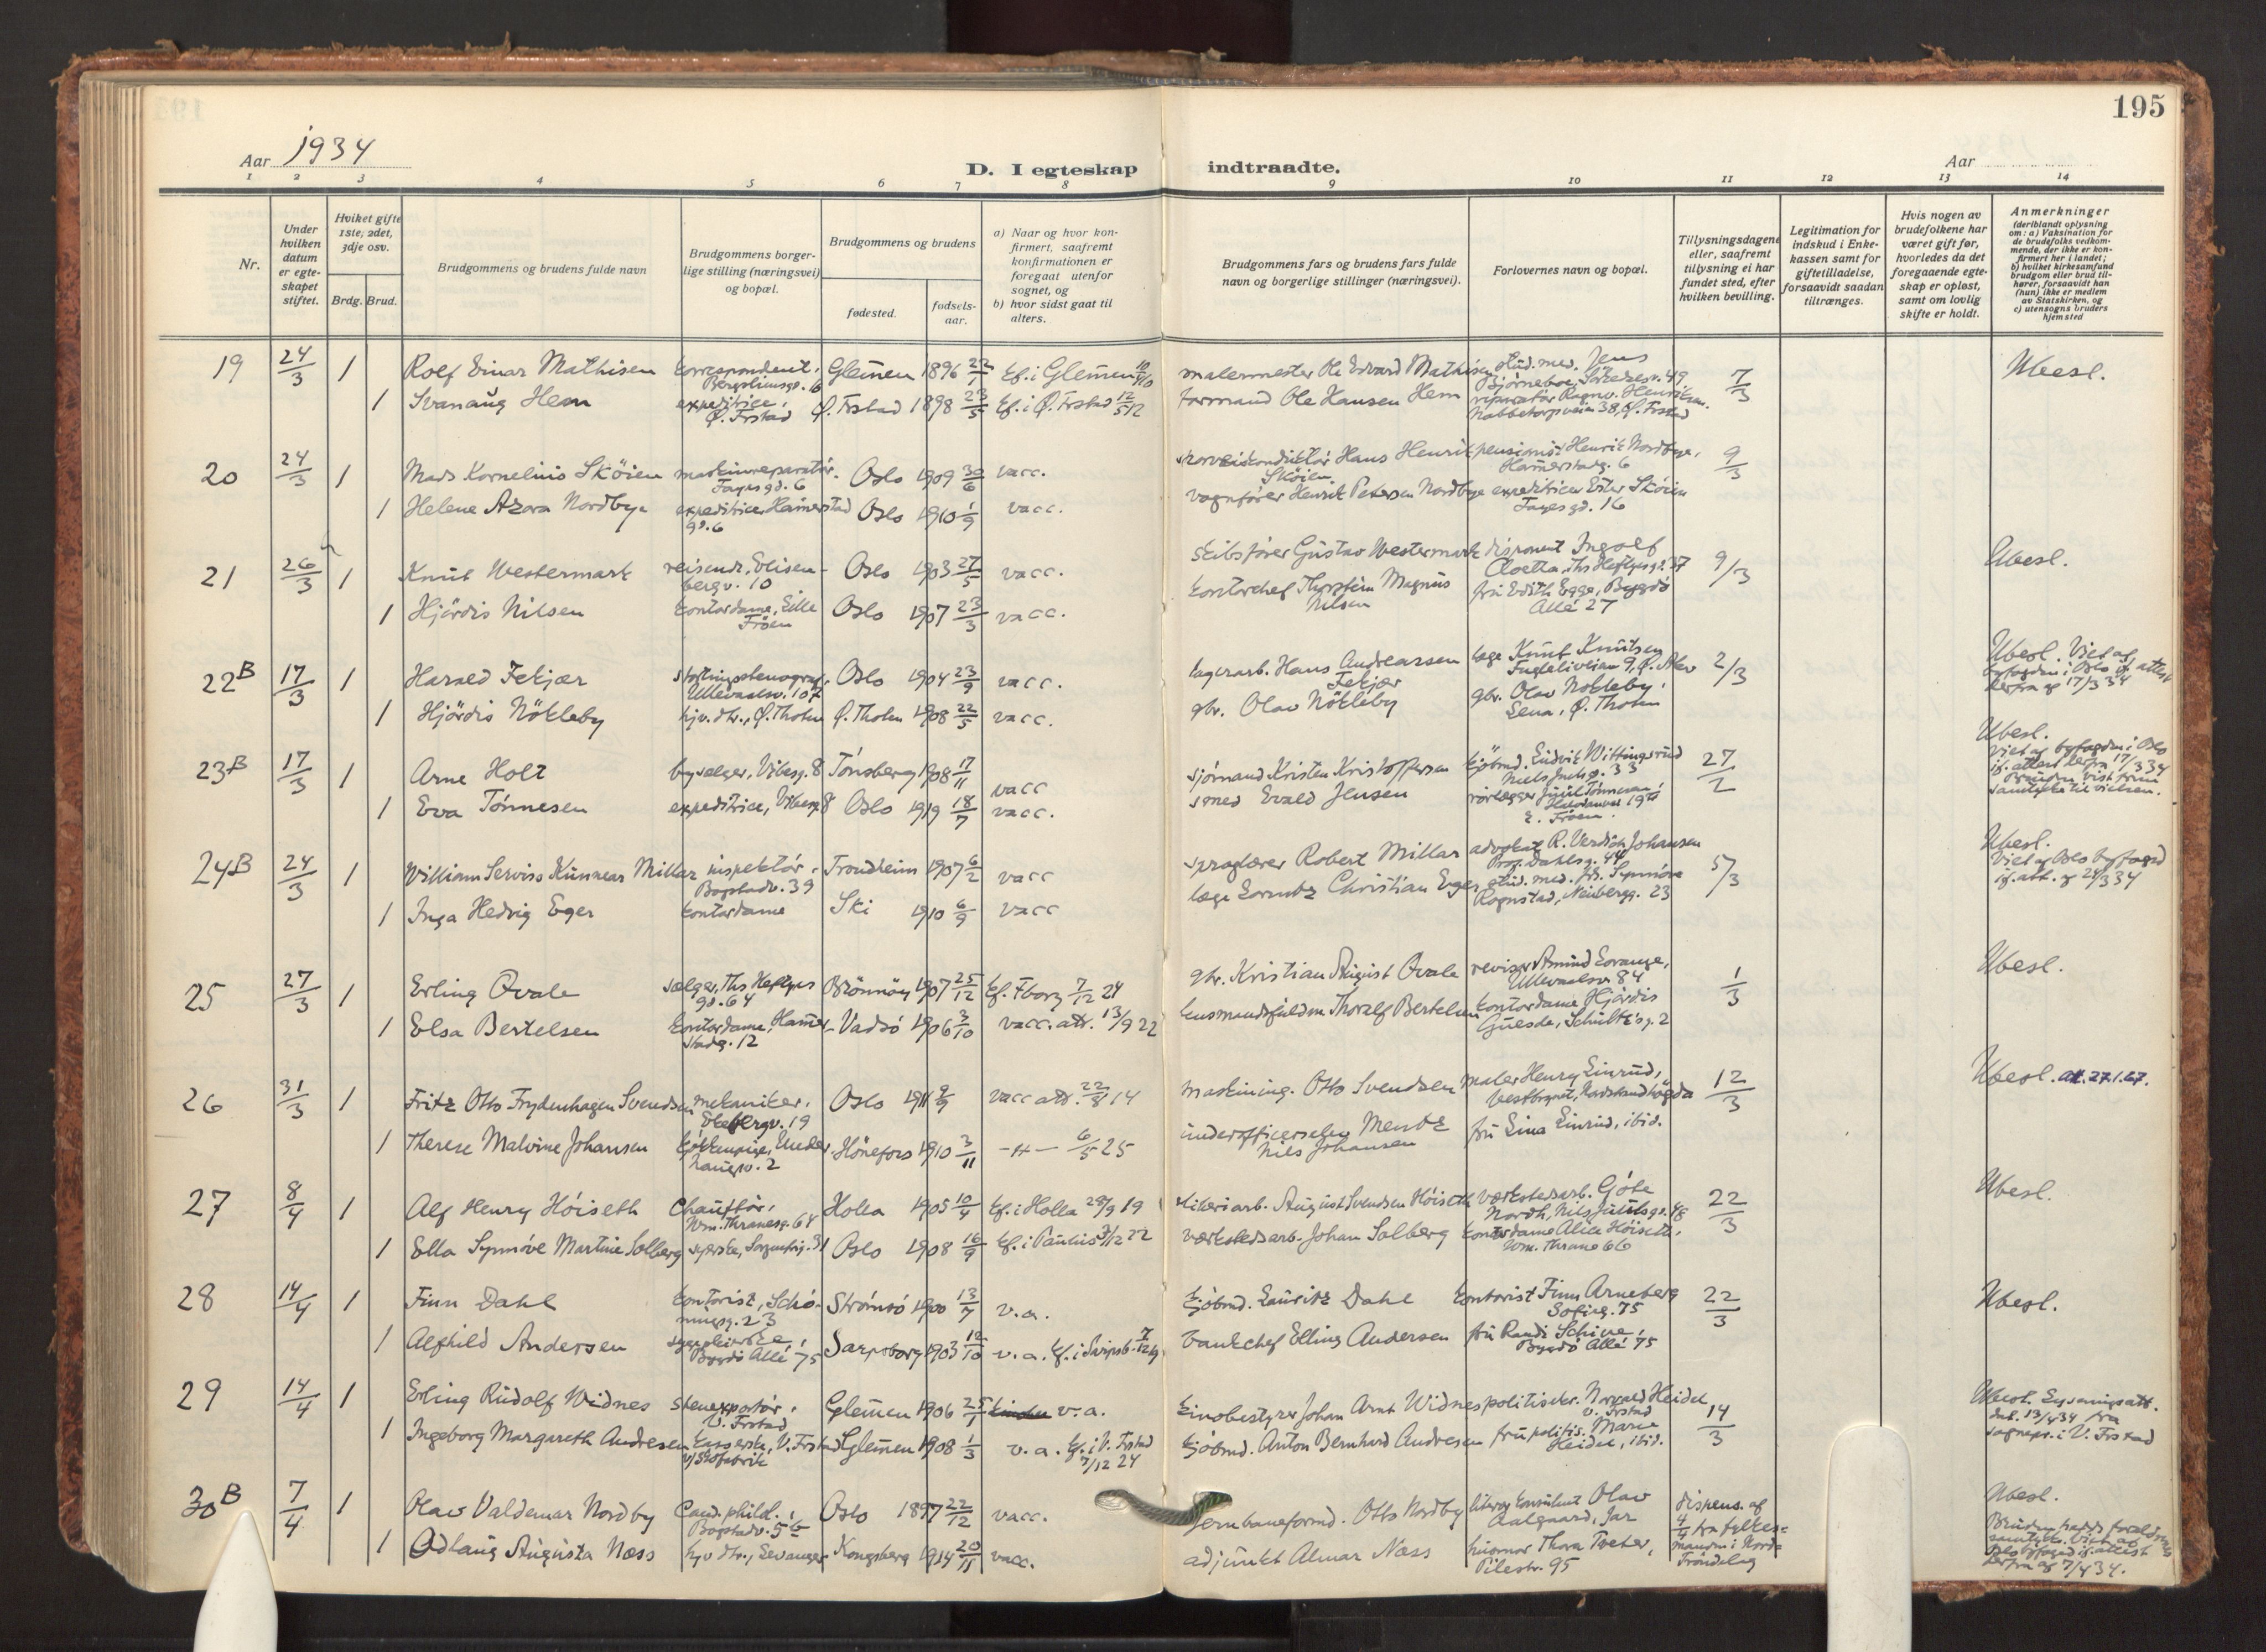 195
Aar 1934
D. I egteskap indtraadte.
Aar
1 2 3 4 5 6 7 8 9 10 11 12 13 14
Nr.
Under hvilken datum er egteskapet stiftet.
Hvilket gifte 1ste, 2det, 3dje osv.
Brdg. Brud.
Brudgommens og brudens fulde navn
Brudgommens borgerlige stilling (næringsvei) og bopæl.
Brudgommens og brudens
fødested.
fødselsaar.
a) Naar og hvor konfirmert, saafremt konfirmationen er foregaat utenfor sognet, og
b) hvor sidst gaat til alters.
Brudgommens fars og brudens fars fulde navn og borgerlige stillinger (næringsvei).
Forlovernes navn og bopæl.
Tillysningsdagene eller, saafremt tillysning ei har fundet sted, efter hvilken bevilling.
Legitimation for indskud i Enkekassen samt for giftetilladelse, forsaavidt saadan tiltrænges.
Hvis nogen av brudefolkene har været gift før, hvorledes da det foregaaende egteskap er opløst, samt om lovlig skifte er holdt.
Anmerkninger (deriblandt oplysning om: a) Vaksination for de brudefolks vedkommende, der ikke er konfirmert her i landet; b) hvilket kirkesamfund brudgom eller brud tilhører, forsaavidt han (hun) ikke er medlem av Statskirken, og c) utensogns bruders hjemsted
19 24/3 1 Rolf Einar Mathisen korrespondent, Bergsliensg. 16 Glemmen 1896 22/1 kf. i Glemmen malermester Ole Edvard Mathisen stud. med. Jens Bjørneboe, Sørkedsv. 49 7/3 Ubesl.
1 Svanaug Hem expeditrice, Ø. Frstad Ø. Frstad 1898 23/5 kf. i Ø. Frstad 12/5 12 formand Ole Hansen Hem reparatør Ragnv. Henriksen. Nabbetorpveien 38, Ø. Frstad
20 24/3 1 Mads Kornelius Sköien maskinreparatör. Fagesgd. 6 Oslo 1909 30/6 vacc. sporveiskonduktør Hans Henrik Sköien. pensionist Henrik Nordbye, Hammerstadg. 6 9/3
1 Helene Azora Nordbye expeditrice Hammerstad gd. 6 Oslo 1910 1/9 vacc. vognfører Henrik Petersen Nordbye expeditrice Ester Sköien Fagesgd. 16
21 26/3 1 Knut Westermark reisende, Elisenbergv. 10 Oslo 1903 27/5 vacc. skibsfører Gustav Westermark disponent Ingolf Cloetta, Ths Heftyesg. 37 9/3 Ubesl.
1 Hjördis Nilsen kontordame, Lille Fröen Oslo 1907 23/3 vacc. kontorchef Thorstein Magnus Nilsen fru Edith Egge, Bygdö Allé 27
22B 17/3 1 Harald Fekjær stortingsstenograf, Ullevaalsv. 107 Oslo 1904 23/9 vacc. lagerarb. Hans Andreassen Fekjær læge Knut Knutsen Fugleliveien 9, Ø. Aker 2/3 Ubesl. Viet af byfogden i Oslo if. attest herfra af 17/3 34
1 Hjördis Nökleby hjv. dtr., Ø. Thoten Ø. Thoten 1908 22/5 vacc. gbr. Olav Nökleby gbr. Olav Nökleby, Lena, Ø. Thoten
23B 17/3 1 Arne Holt bysælger, Vibesg. 8 Tønsberg 1908 17/11 vacc sjömand Kristen Kristoffersen kjöbmd. Ludvik Wittingsrud Niels Juelsg. 33 27/2 Ubesl. Viet af byfogden i Oslo if. attest herfra 17/3 34
1 Eva Tönnesen expeditrice, Vibesg. 8 Oslo 1919 18/7 vacc. smed Evald Jensen rörlægger Juul Tönnesen, L. Fröen. samtykke til vielsen.
24B 24/3 1 William Serviss Kinnear Millar inspektör. Bogstadv. 39 Trondheim 1907 6/2 vacc sproglærer Robert Millar advokat R. Verdich Johansen Prof. Dahlsg. 44 5/3 Ubesl. Viet af Oslo byfogd if. att. af 24/3 34
1 Inga Hedvig Eger kontordame Ski 1910 6/9 vacc læge Lorentz Christian Eger stud. med. frk. Synnöve Rognstad, Neubergg. 23
25 27/3 1 Erling Ovale sælger, Ths Heftyes gd. 64 Brönnöy 1907 25/12 kf. Fborg 7/12 24 gbr. Kristian August Ovale revisor Amund Lorange, Ullevaalsv. 84 1/3 Ubesl.
1 Elsa Bertelsen kontordame, Hammerstadg. 12 Vadsö 1906 3/10 vacc. att. 13/9 22 lensmandsfuldm. Thoralf Bertelsen kontordame Hjördis Guesde, Schultz'sg. 2
26 31/3 1 Fritz Otto Frydenhagen Svendsen mekaniker, Ekebergv. 19 Oslo 1911 9/9 vacc att. 22/8 14 maskining. Otto Svendsen maler Henry Linrud, 12/3 Ubesl. att. 27.1.67.
1 Therese Malvine Johansen kjökkenpige, Underhaugsv. 2 Hönefoss 1910 3/11 -"- 6/5 25 underofficerselev Mentz Nils Johansen fru Lina Linrud, ibid.
27 8/4 1 Alf Henry Höiseth Chauffør, Wm. Thranesg. 64 Holla 1905 10/4 kf. i Holla 28/9 19 sliperiarb. August Svendsen Höiseth værkstedsarb. Göte Nordh, Nils Juulsg. 48 22/3 Ubesl.
1 Ella Synnöve Martine Solberg syerske, Sorgenfrig. 31 Oslo 1908 16/9 kf. i Paulus 3/12 22 værkstedsarb. Johan Solberg kontordame Alice Höiseth, Wm. Thrane 66
28 14/4 1 Finn Dahl kontorist, Schöningsg. 23 Strømsö 1900 13/7 v. a. kjöbmd. Lauritz Dahl kontorist Finn Arneberg Sofieg. 75 22/3 Ubesl.
1 Alfhild Andersen sygepleierske, Bygdö Allé 75 Sarpsborg 1903 12/10 v. a. kf. i Sarpsb. bankchef Elling Andersen fru Randi Schive, Bygdö Allé 75
29 14/4 1 Erling Rudolf Widnes stenexportör, V. Frstad Glemmen 1906 25/1 v. a. kinobestyrer Johan Arnt Widnes politibtr. Norvald Heidel V. Frstad 14/3 Ubesl. Lysningsatt. dat. 13/4 34 fra sognepr. i V. Frstad
1 Ingeborg Margareth Andresen kasserske, V. Frstad v/ Skofabrik Glemmen 1908 1/3 v. a. kf. i V. Frstad 7/12 24 kjöbmd. Anton Bernhard Andresen fru politib. Marie Heidel, ibid.
30B 7/4 1 Olav Valdemar Nordby Cand. phild., Bogstadv. Oslo 1897 22/12 vacc. jernbaneformd. Otto Nordby literær konsulent Olav Aalgaard, Jar dispens. af 4/4 fra fylkesmanden i Nord-Tröndelag Ubesl. Bruden havde forældrenes samtykke. Viet af Oslo byfogd if. attest herfra af 7/4 34.
1 Adlaug Augusta Næss hjv. dtr., Levanger Kongsberg 1914 20/11 vacc. adjunkt Almar Næss husmor Thora Tveter, Pilestr. 95